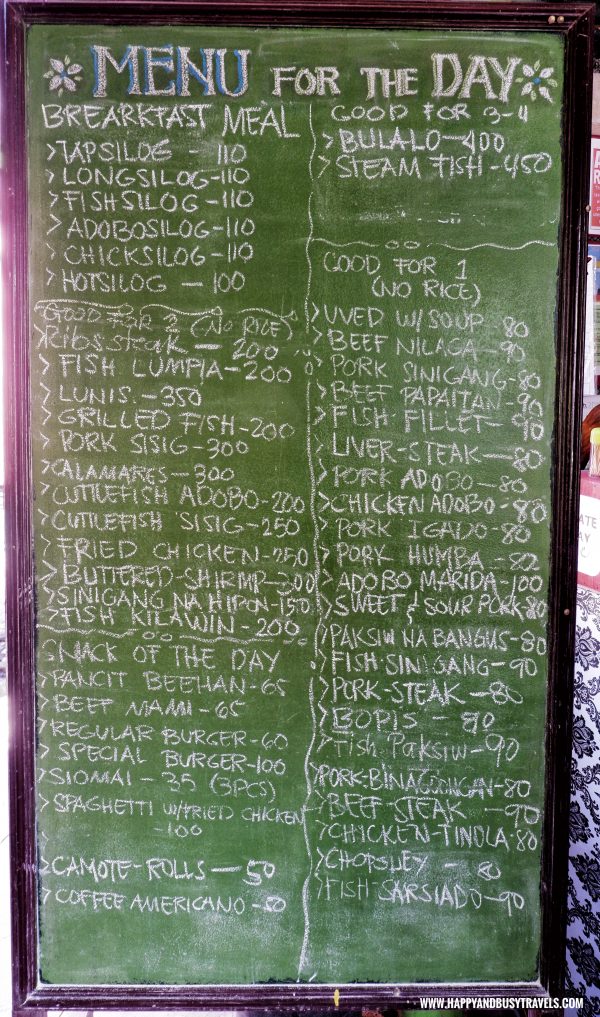 MENU FOR THE DAY
BREAKFAST MEAL
>TAPSILOG - 110
>LONGSILOG-110
>FISHSILOG-110
>ADOBOSILOG-110
>CHICKSILOG-110
>HOTSILOG - 100
GOOD FOR 2 (NO RICE)
>Ribssteak - 200
>FISH LUMPIA-200
>LUNIS.-350
>GRILLED FISH-200
>PORK SISIG-300
>CALAMARES-300
>CUTTLEFISH ADOBO-200
>CUTTLEFISH SISIG-250
>FRIED CHICKEN-250
>BUTTERED-SHIRMP-300
>SINIGANG NA HIPON-150
>FISH KILAWIN-200
SNACK OF THE DAY
>PANCIT BEEHAN-65
>BEEF MAMI-65
>REGULAR BURGER-60
>SPECIAL BURGER-100
>SIOMAI - 35 (3PCS)
>SPAGHETTI W/FRIED CHICKEN
-100
>
>CAMOTE-ROLLS-50
>COFFEE AMERICANO-50
GOOD FOR 3-4
>BULALO-400
>STEAM FISH-450
GOOD FOR 1
(NO RICE)
>UVED W/SOUP-80
>BEEF NILAGA-90
>PORK SINIGANG-80
>BEEF PAPAITAN-90
>FISH-FILLET-90
>LIVER-STEAK-80
>PORK ADOBO-80
>CHICKEN ADOBO-80
>PORK IGADO-80
>PORK HUMBA-80
>ADOBO MARIDA-100
>SWEET & SOUR PORK-80
>PAKSIW NA BANGUS-80
>FISH-SINIGANG-90
>PORK-STEAK-80
>BOPIS-80
>Fish Paksiw-90
>PORK-BINAGOONGAN-80
>BEEF-STEAK-90
>CHICKEN-TINOLA-80
>CHOPSUEY-80
>FISH-SARSIADO-90
WWW.HAPPYANDBUSYTRAVELS.COM